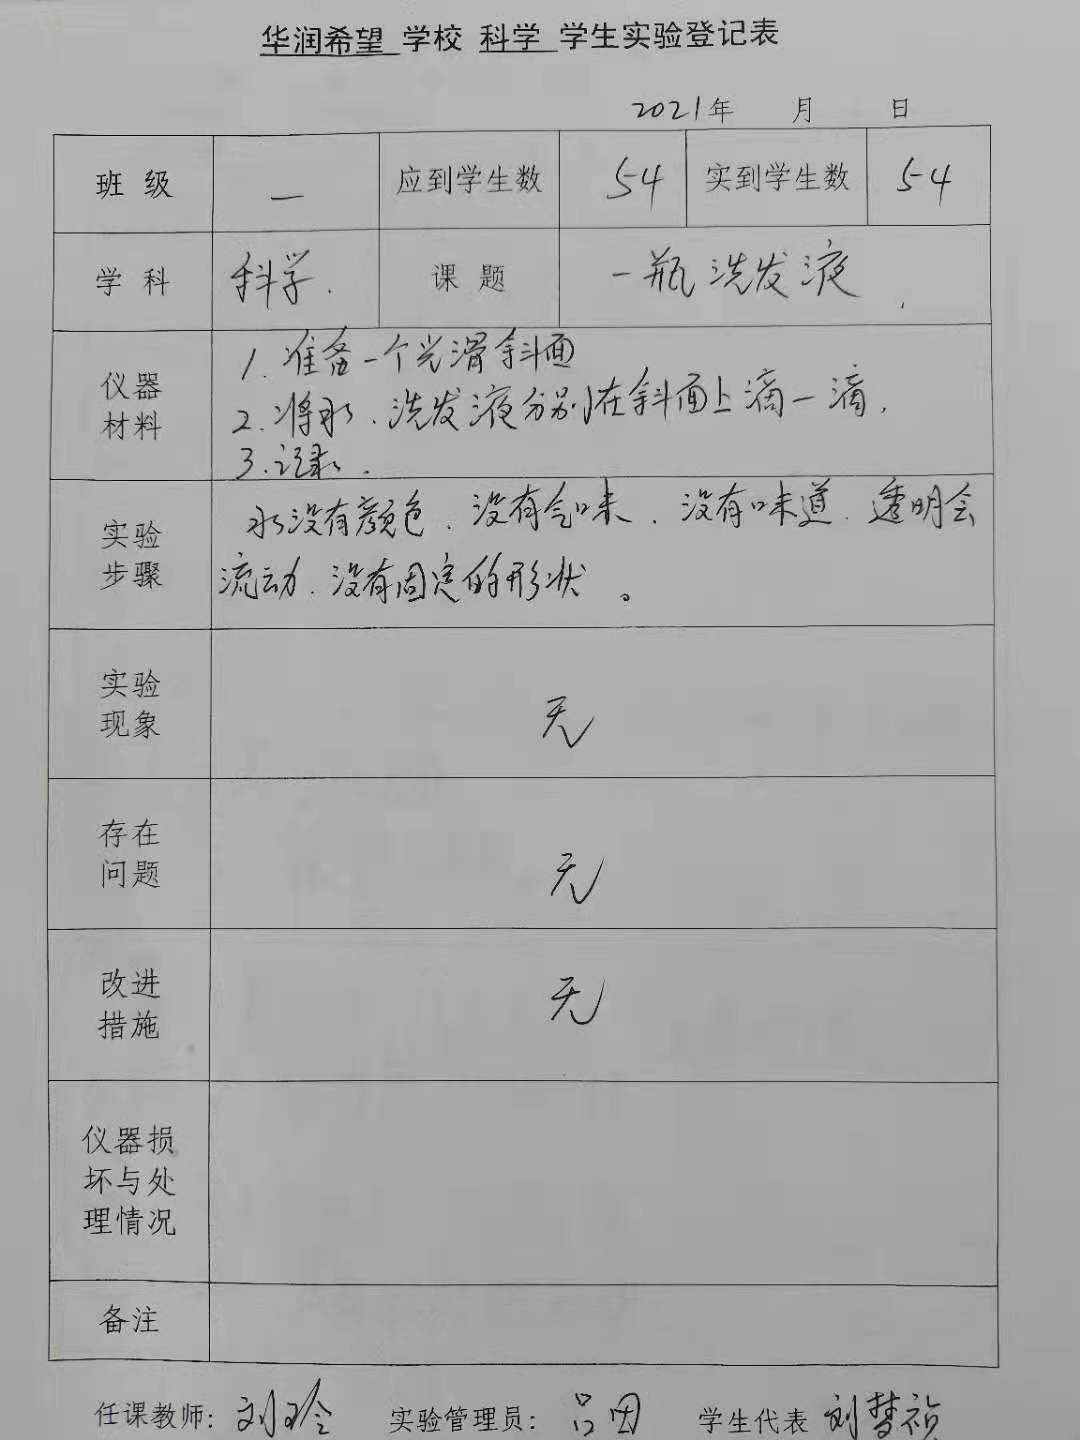 华润希望 学校 科学 学生实验登记表
2021年 月 日
班 级 一 应到学生数 54 实到学生数 54
学 科 科学. 课 题 一瓶洗发液.
仪器
材料
1.准备一个光滑斜面
2.将水、洗发液分别在斜面上滴一滴.
3.记录.
实验
步骤
水没有颜色、没有气味、没有味道、透明会
流动、没有固定的形状。
实验
现象
无
存在
问题
无
改进
措施
无
仪器损
坏与处
理情况
备注
任课教师: 刘玲 实验管理员: 吕因 学生代表 刘梦祯